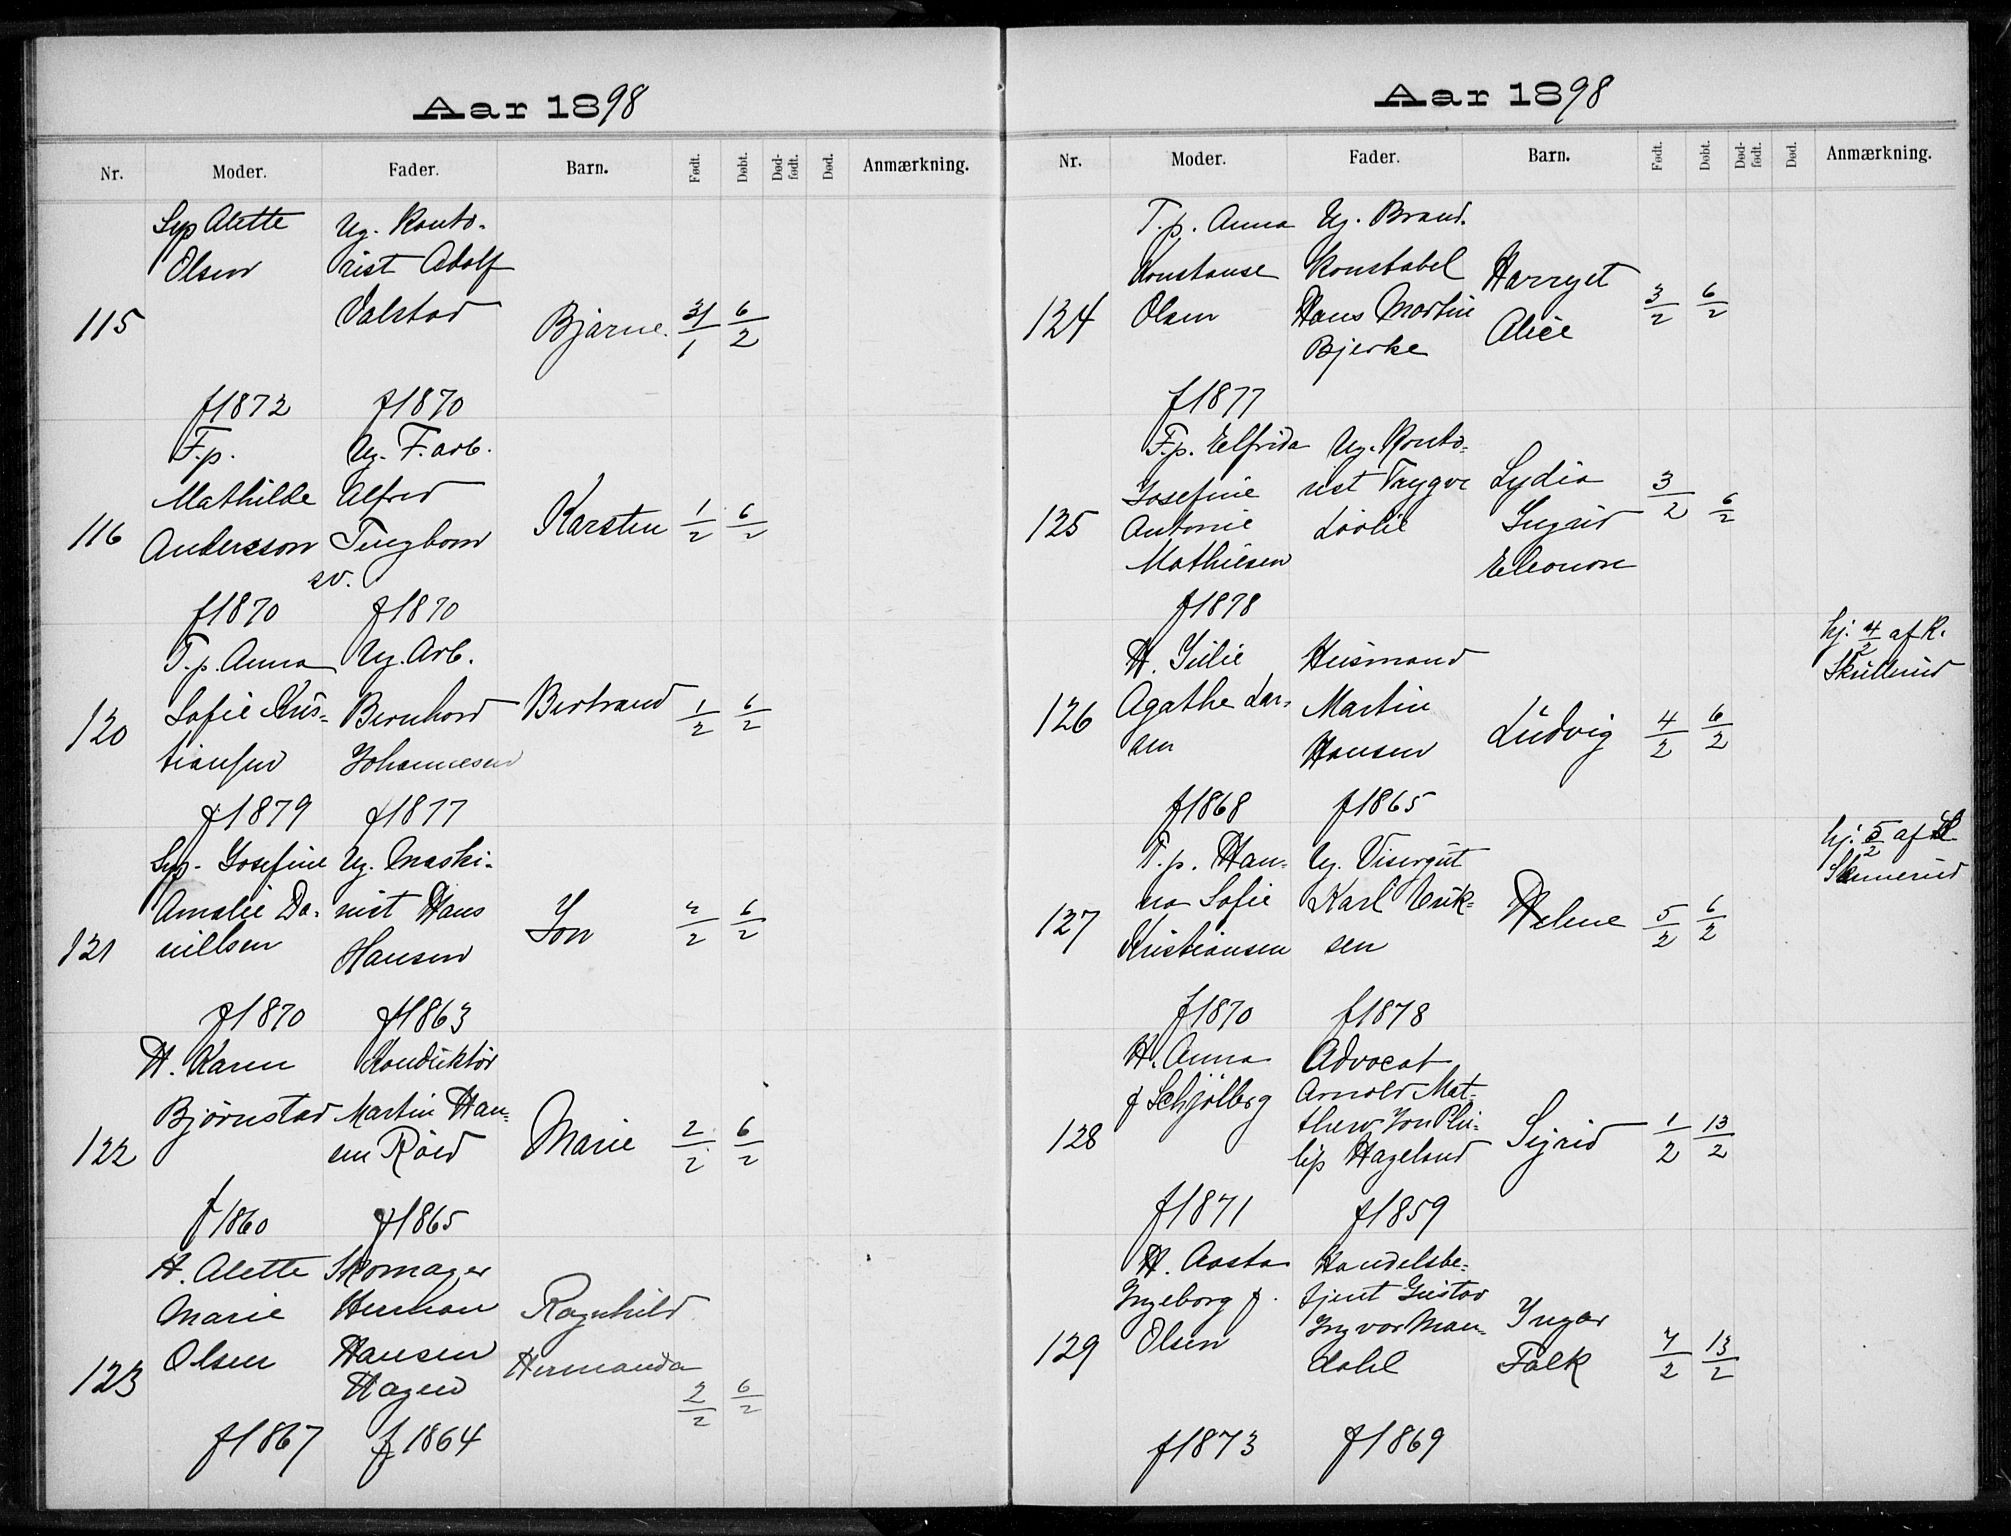 Aar 1898
Nr. Moder. Fader. Barn. Født. Døbt. Død-født. Død. Anmærkning.
115
Syp Alette
Olsen
f 1872
Ug. Konto-
rist Adolf
Valstad
f 1870
Bjarne. 31/1 6/2
116
F.p.
Mathilde
Andersson
sv.
f 1870
Ug. F. arb.
Alfred
Tingbom
f 1870
Karsten 1/2 6/2
120
T.p. Anna
Sofie Kris-
tiansen
f 1879
Ug. Arb.
Bernhard
Johannesen
f 1877
Bertrand 1/2 6/2
121
Syp. Josefine
Amalie Da-
nillsen
f 1870
Ug. Maski-
nist Hans
Hansen
f 1863
Jon 2/2 6/2
122
H. Karen
Bjørnstad
f 1860
Konduktør
Martin Han-
sen Röed
f 1865
Marie 2/2 6/2
123
H. Alette
Marie
Olsen
f 1867
Skomager
Herman
Hansen
Hagen
f 1864
Ragnhild
Hermanda
2/2 6/2
Aar 1898
Nr. Moder. Fader. Barn. Født. Døbt. Død-født. Død. Anmærkning.
124
T.p. Anna
Konstanse
Olsen
f 1877
Ug. Brand-
konstabel
Hans Martin
Bjerke
Harryet
Alice
3/2 6/2
125
F.p. Elfrida
Josefine
Antonie
Mathiesen
f 1878
Ug. Konto-
rist Trygve
Lydia
Ingrid
Eleonore
3/2 6/2
126
H. Julie
Agathe Lar-
sen
f 1868
Husmand
Martin
Hansen
f 1865
Ludvig 4/2 6/2
hj. 4/2 af K.
Skullerud
127
T.p. Han-
na Sofie
Kristiansen
f 1870
Ug. Visergut
Karl Erik-
sen
f 1878
Helene 5/2 6/2
hj. 5/2 af
128
H. Anna
f Schjølberg
f 1871
Advocat
Arnold Mat-
thew Jon Phi-
lip Hageland
f 1859
Sigrid 1/2 13/2
129
H. Aasta
Ingeborg f.
Olsen
f 1873
Handelsbe-
tjent Gustav
Ingvar Man-
dahl
f 1869
Ingar
Falk
7/2 13/2